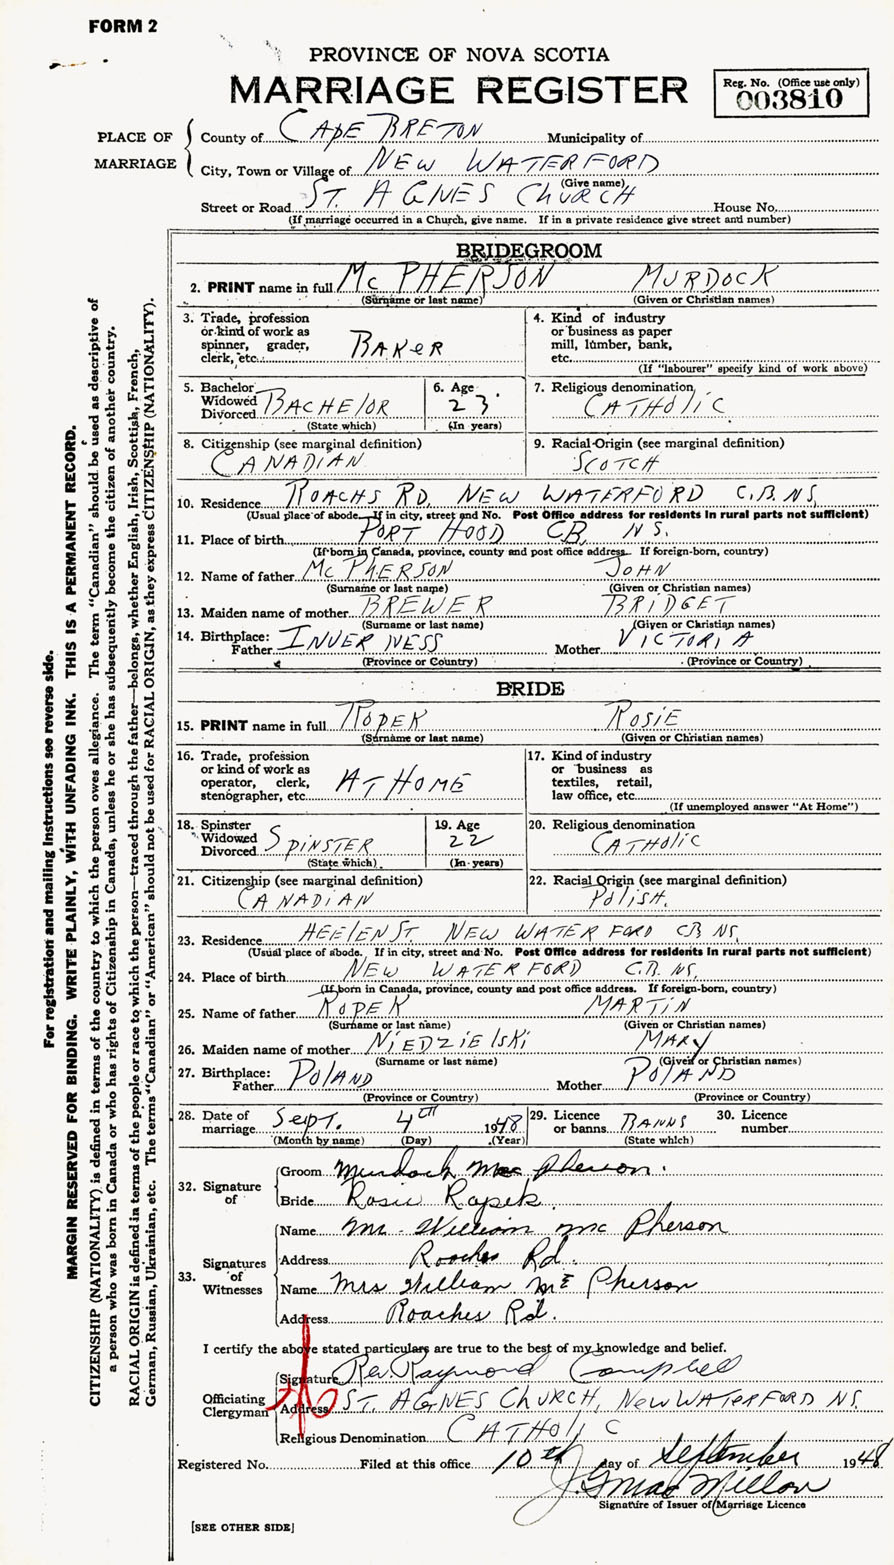 FORM 2
PROVINCE OF NOVA SCOTIA
MARRIAGE REGISTER
Reg. No. (Office use only)
003810
PLACE OF MARRIAGE
County of CAPE BRETON Municipality of
City, Town or Village of NEW WATERFORD
(Give name)
Street or Road ST. AGNES CHURCH House No.
(If marriage occurred in a Church, give name. If in a private residence give street and number)
BRIDEGROOM
2. PRINT name in full McPHERSON MURDOCK
(Surname or last name) (Given or Christian names)
3. Trade, profession or kind of work as spinner, grader, clerk, etc. BAKER
4. Kind of industry or business as paper mill, lumber, bank, etc.
(If "labourer" specify kind of work above)
5. Bachelor Widowed Divorced BACHELOR
(State which)
6. Age 23
(In years)
7. Religious denomination CATHOLIC
8. Citizenship (see marginal definition) CANADIAN
9. Racial Origin (see marginal definition) SCOTCH
10. Residence ROACHS RD, NEW WATERFORD C.B. NS,
(Usual place of abode. If in city, street and No. Post Office address for residents in rural parts not sufficient)
11. Place of birth PORT HOOD CB, NS.
(If born in Canada, province, county and post office address. If foreign-born, country)
12. Name of father McPHERSON JOHN
(Surname or last name) (Given or Christian names)
13. Maiden name of mother BREWER BRIDGET
(Surname or last name) (Given or Christian names)
14. Birthplace: Father INVERNESS Mother VICTORIA
(Province or Country) (Province or Country)
BRIDE
15. PRINT name in full ROPEK ROSIE
(Surname or last name) (Given or Christian names)
16. Trade, profession or kind of work as operator, clerk, stenographer, etc. AT HOME
17. Kind of industry or business as textiles, retail, law office, etc.
(If unemployed answer "At Home")
18. Spinster Widowed Divorced SPINSTER
(State which)
19. Age 22
(In years)
20. Religious denomination CATHOLIC
21. Citizenship (see marginal definition) CANADIAN
22. Racial Origin (see marginal definition) POLISH.
23. Residence HEELEN ST. NEW WATERFORD CB NS,
(Usual place of abode. If in city, street and No. Post Office address for residents in rural parts not sufficient)
24. Place of birth NEW WATERFORD C.B. NS.
(If born in Canada, province, county and post office address. If foreign-born, country)
25. Name of father ROPEK MARTIN
(Surname or last name) (Given or Christian names)
26. Maiden name of mother NIEDZIELSKI MARY
(Surname or last name) (Given or Christian names)
27. Birthplace: Father POLAND Mother POLAND
(Province or Country) (Province or Country)
28. Date of marriage SEPT. 4TH 1948
(Month by name) (Day) (Year)
29. Licence or banns BANNS
(State which)
30. Licence number
32. Signature of
Groom Murdock Mac Pherson.
Bride Rosie Ropek.
33. Signatures of Witnesses
Name Mr. William McPherson
Address Roaches Rd.
Name Mrs William McPherson
Address Roaches Rd.
I certify the above stated particulars are true to the best of my knowledge and belief.
Officiating Clergyman
Signature Rev. Raymond Campbell
Address ST. AGNES CHURCH, NEW WATERFORD NS.
Religious Denomination CATHOLIC
Registered No. Filed at this office 10th day of September 1948
J. G. MacMillan
Signature of Issuer of Marriage Licence
[SEE OTHER SIDE]
For registration and mailing instructions see reverse side.
MARGIN RESERVED FOR BINDING. WRITE PLAINLY, WITH UNFADING INK. THIS IS A PERMANENT RECORD.
CITIZENSHIP (NATIONALITY) is defined in terms of the country to which the person owes allegiance. The term "Canadian" should be used as descriptive of
a person who was born in Canada or who has rights of Citizenship in Canada, unless he or she has subsequently become the citizen of another country.
RACIAL ORIGIN is defined in terms of the people or race to which the person—traced through the father—belongs, whether English, Irish, Scottish, French,
German, Russian, Ukrainian, etc. The terms "Canadian" or "American" should not be used for RACIAL ORIGIN, as they express CITIZENSHIP (NATIONALITY).